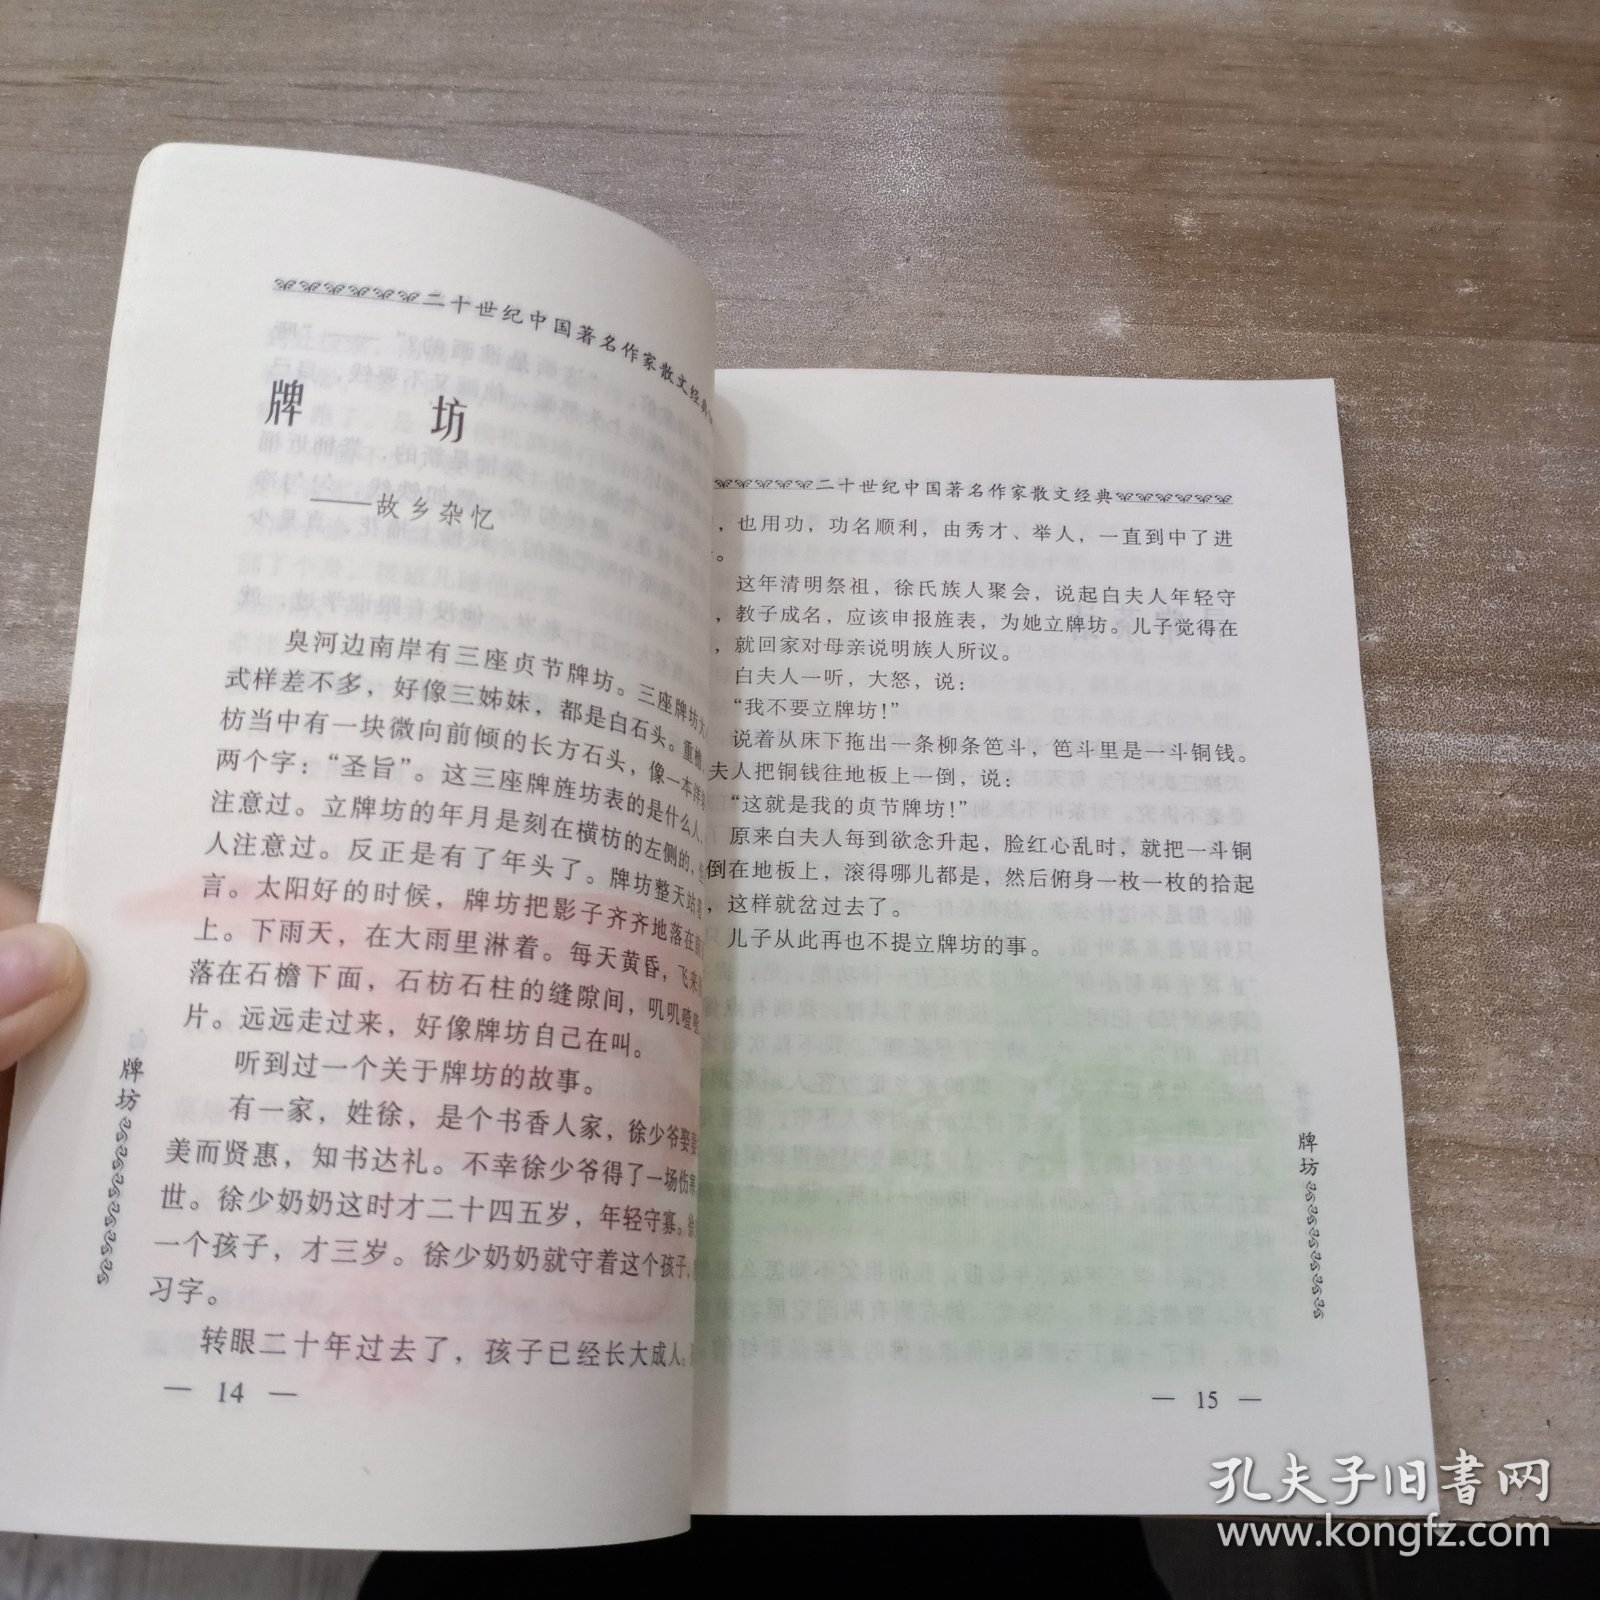 二十世纪中国著名作家散文经典
牌坊
——故乡杂忆
臭河边南岸有三座贞节牌坊。三座牌坊大
式样差不多，好像三姊妹，都是白石头。重檐，
枋当中有一块微向前倾的长方石头，像一本洋
两个字：“圣旨”。这三座牌旌坊表的是什么人，
注意过。立牌坊的年月是刻在横枋的左侧的，
人注意过。反正是有了年头了。牌坊整天站着，
言。太阳好的时候，牌坊把影子齐齐地落在前
上。下雨天，在大雨里淋着。每天黄昏，飞来
落在石檐下面，石枋石柱的缝隙间，叽叽喳喳
片。远远走过来，好像牌坊自己在叫。
听到过一个关于牌坊的故事。
有一家，姓徐，是个书香人家，徐少爷娶妻
美而贤惠，知书达礼。不幸徐少爷得了一场伤寒
世。徐少奶奶这时才二十四五岁，年轻守寡。徐
一个孩子，才三岁。徐少奶奶就守着这个孩子，
习字。
转眼二十年过去了，孩子已经长大成人。
— 14 —
牌坊
二十世纪中国著名作家散文经典
，也用功，功名顺利，由秀才、举人，一直到中了进
。
这年清明祭祖，徐氏族人聚会，说起白夫人年轻守
，教子成名，应该申报旌表，为她立牌坊。儿子觉得在
，就回家对母亲说明族人所议。
白夫人一听，大怒，说：
“我不要立牌坊！”
说着从床下拖出一条柳条笆斗，笆斗里是一斗铜钱。
夫人把铜钱往地板上一倒，说：
“这就是我的贞节牌坊！”
原来白夫人每到欲念升起，脸红心乱时，就把一斗铜
倒在地板上，滚得哪儿都是，然后俯身一枚一枚的拾起
，这样就岔过去了。
儿子从此再也不提立牌坊的事。
牌坊
— 15 —
孔夫子旧书网
www.kongfz.com